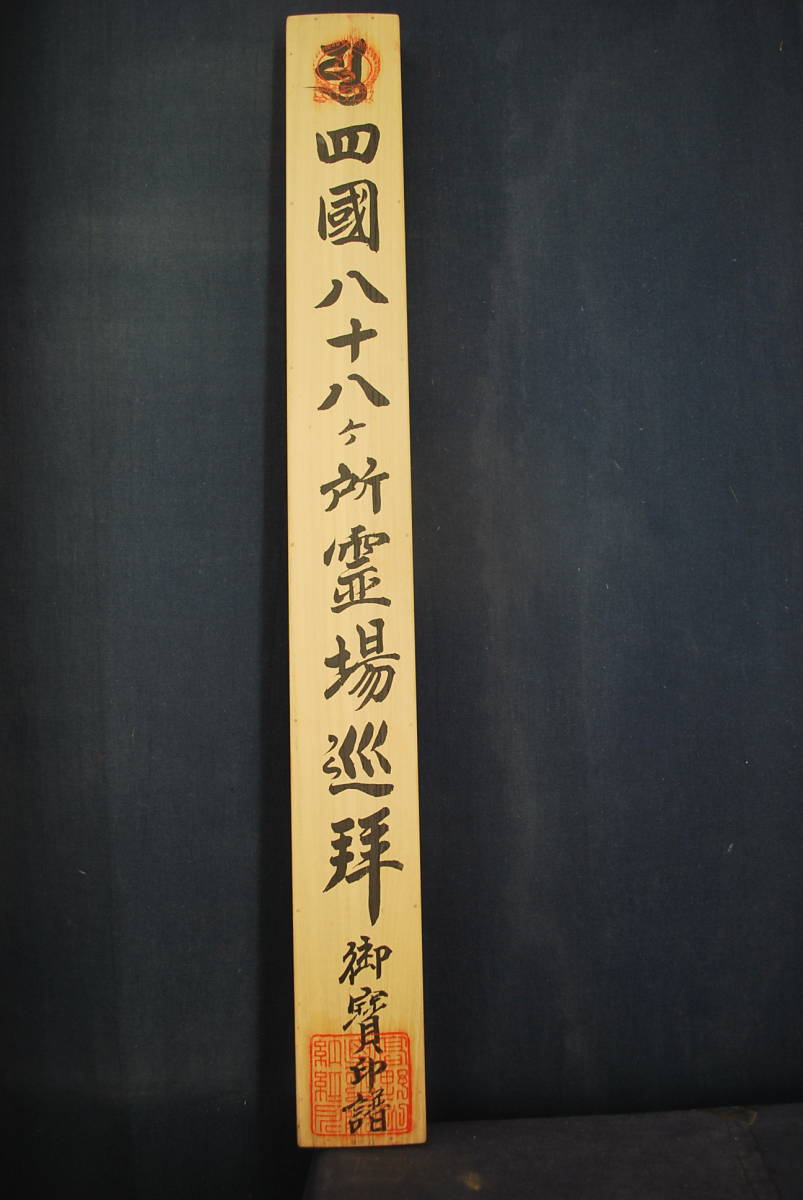 四國八十八ヶ所霊場巡拜
御寳印譜